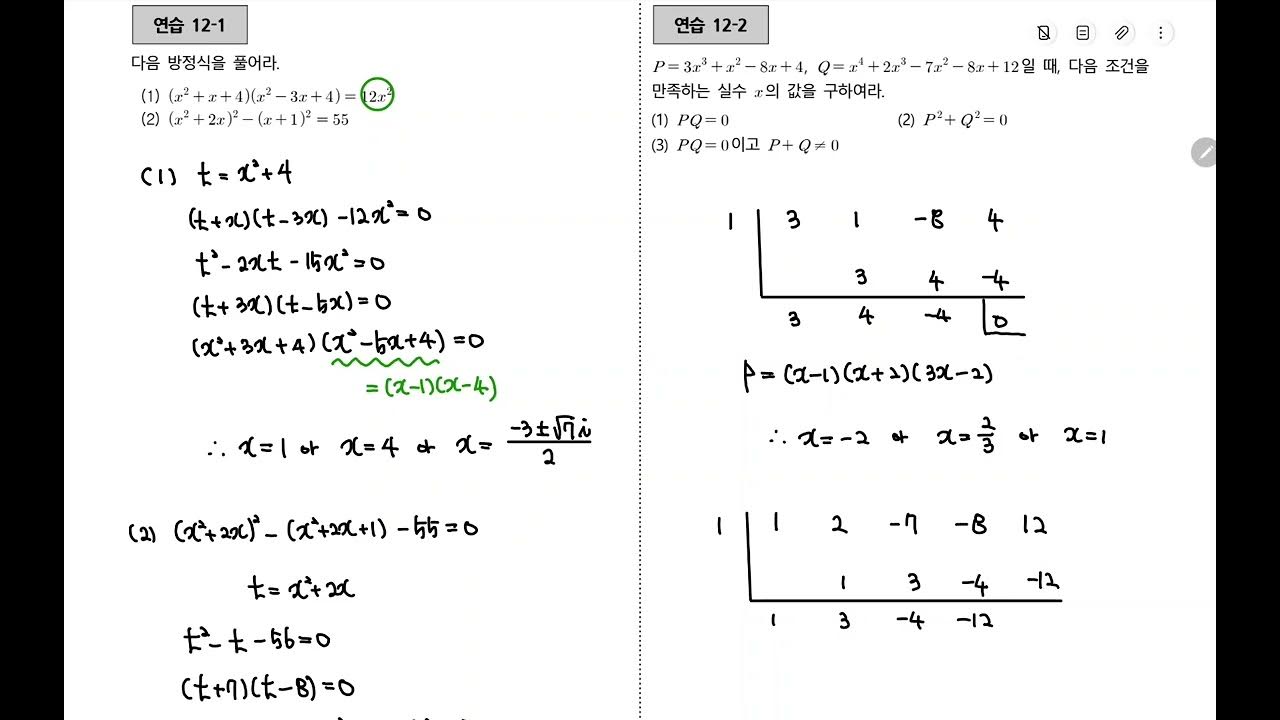 연습 12-1
다음 방정식을 풀어라.
(1) (x² + x + 4)(x² − 3x + 4) = 12x²
(2) (x² + 2x)² − (x + 1)² = 55
(1) t = x² + 4
(t + x)(t − 3x) − 12x² = 0
t² − 2xt − 15x² = 0
(t + 3x)(t − 5x) = 0
(x² + 3x + 4)(x² − 5x + 4) = 0
= (x−1)(x−4)
∴ x = 1 or x = 4 or x = (−3 ± √7 i)/2
(2) (x² + 2x)² − (x² + 2x + 1) − 55 = 0
t = x² + 2x
t² − t − 56 = 0
(t + 7)(t − 8) = 0
연습 12-2
P = 3x³ + x² − 8x + 4, Q = x⁴ + 2x³ − 7x² − 8x + 12일 때, 다음 조건을
만족하는 실수 x의 값을 구하여라.
(1) PQ = 0 (2) P² + Q² = 0
(3) PQ = 0이고 P + Q ≠ 0
1 3 1 −8 4
3 4 −4
3 4 −4 0
P = (x−1)(x+2)(3x−2)
∴ x = −2 or x = 2/3 or x = 1
1 1 2 −7 −8 12
1 3 −4 −12
1 3 −4 −12